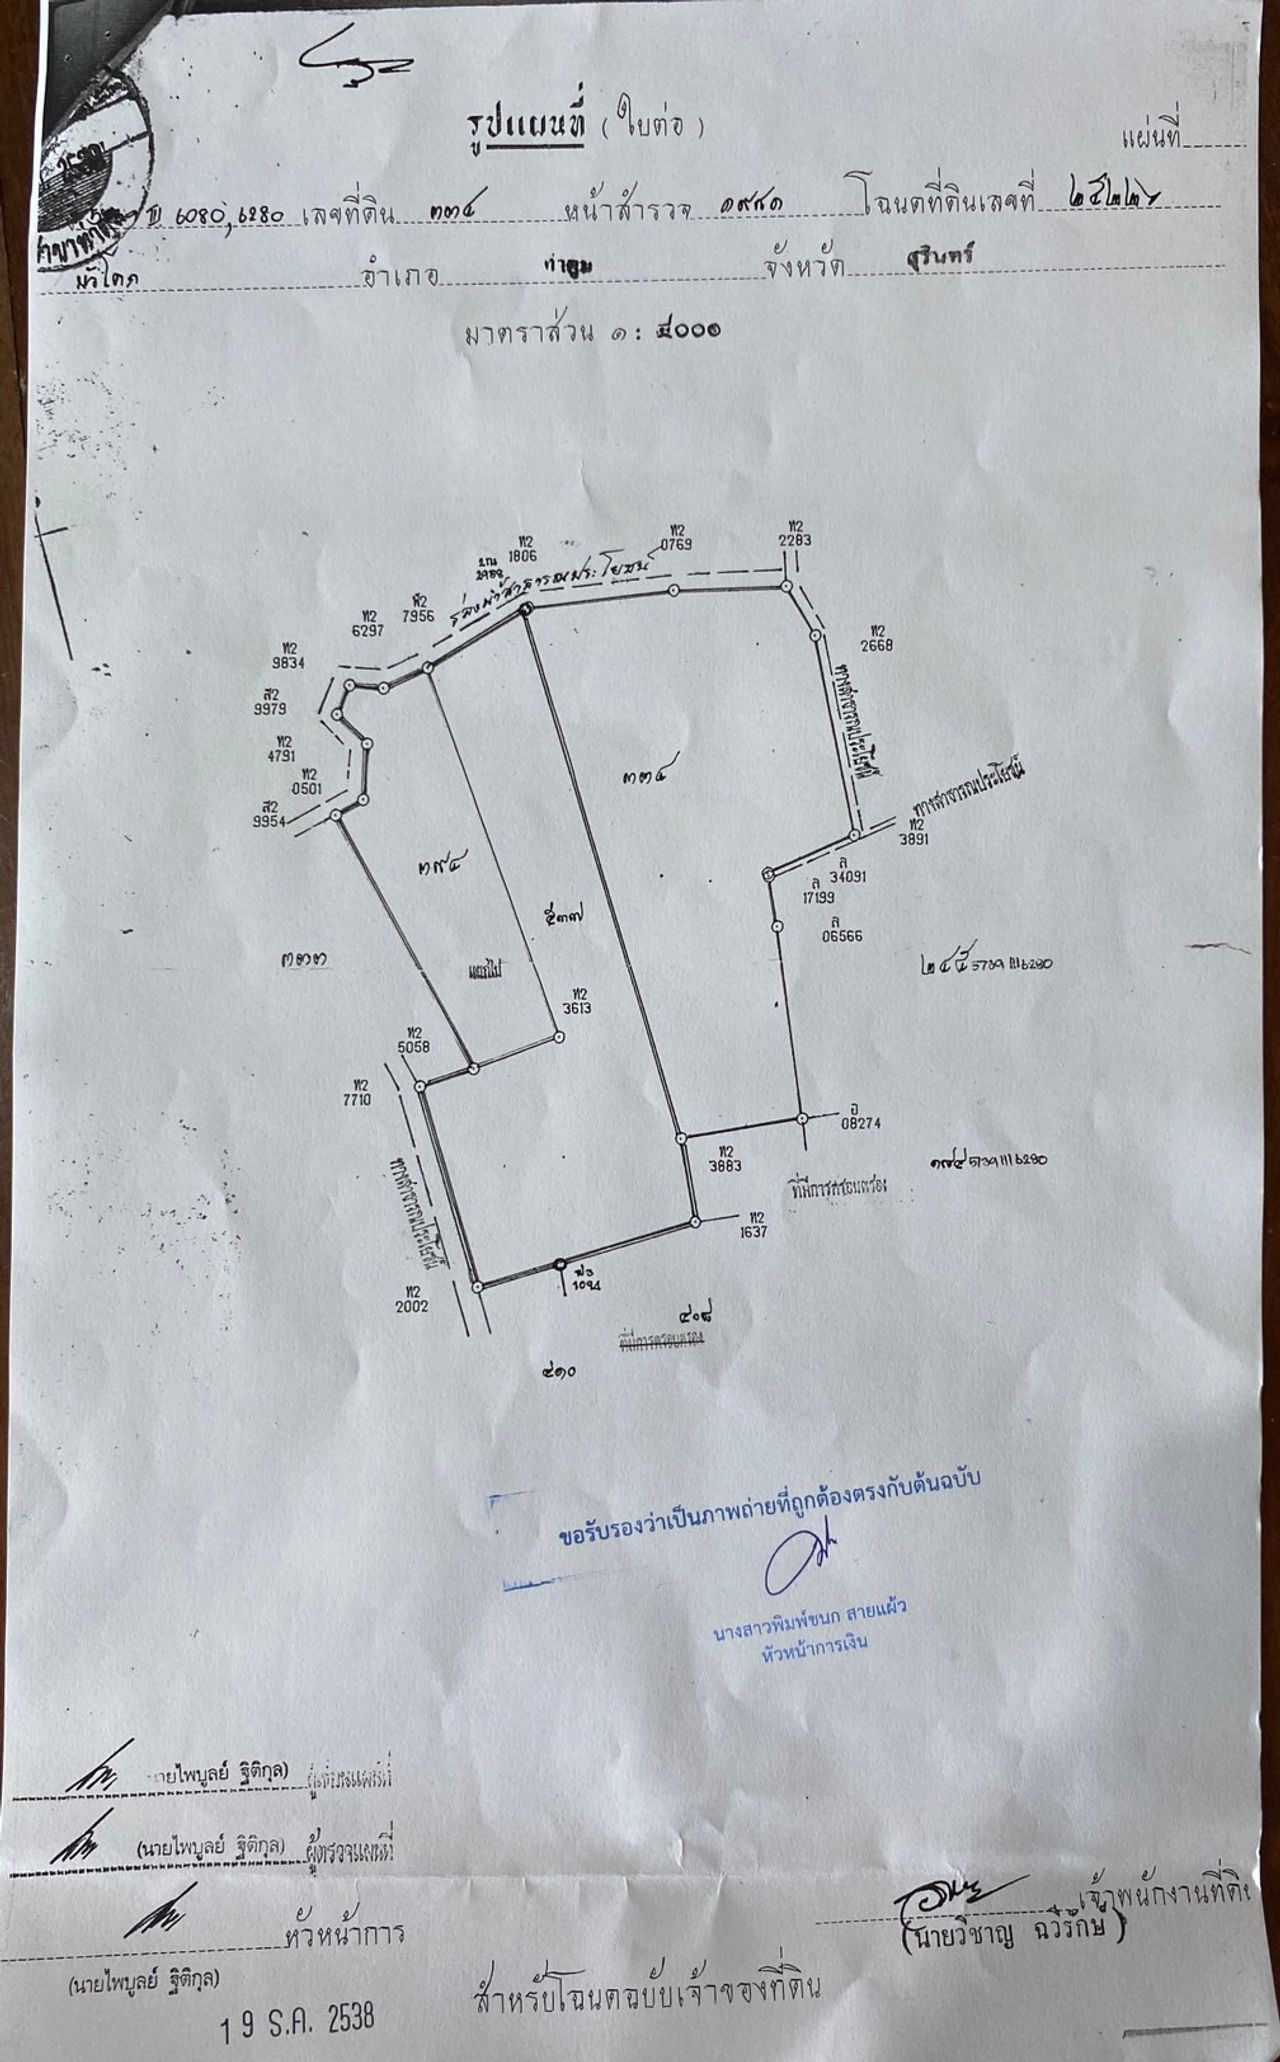 รูปแผนที่ (ใบต่อ)
แผ่นที่
III 6080, 6280 เลขที่ดิน ๓๓๔ หน้าสำรวจ ๑๙๘๑ โฉนดที่ดินเลขที่
บัวโคก อำเภอ ท่าตูม จังหวัด สุรินทร์
มาตราส่วน ๑ : ๔๐๐๐
ท2
1806
ท2
0769
ท2
2283
ร่องน้ำสาธารณประโยชน์
ท2
7956
ท2
6297
ท2
9834
ส2
9979
ท2
4791
ท2
0501
ส2
9954
ท2
2668
ทางสาธารณประโยชน์
ทางสาธารณประโยชน์
ท2
3891
ล
34091
ล
17199
ล
06566
๓๓๔
๓๙๔
๕๓๗
๓๓๓
๒๔๕ 5739 III 6280
ท2
3613
ท2
5058
ท2
7710
ทางสาธารณประโยชน์
อ
08274
ท2
3883
ที่มีการครอบครอง
5739 III 6280
ท2
1637
ท2
2002
๔๐๘
ที่มีการครอบครอง
๔๑๐
ขอรับรองว่าเป็นภาพถ่ายที่ถูกต้องตรงกับต้นฉบับ
นางสาวพิมพ์ชนก สายแผ้ว
หัวหน้าการเงิน
นายไพบูลย์ ฐิติกุล) ผู้เขียนแผนที่
(นายไพบูลย์ ฐิติกุล) ผู้ตรวจแผนที่
หัวหน้าการ
(นายไพบูลย์ ฐิติกุล)
เจ้าพนักงานที่ดิน
(นายวิชาญ ฉวีรักษ์)
สำหรับโฉนดฉบับเจ้าของที่ดิน
19 ธ.ค. 2538